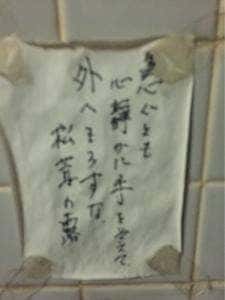 急ぐとも
心静かに手を添えて
外へもらすな
松茸の露